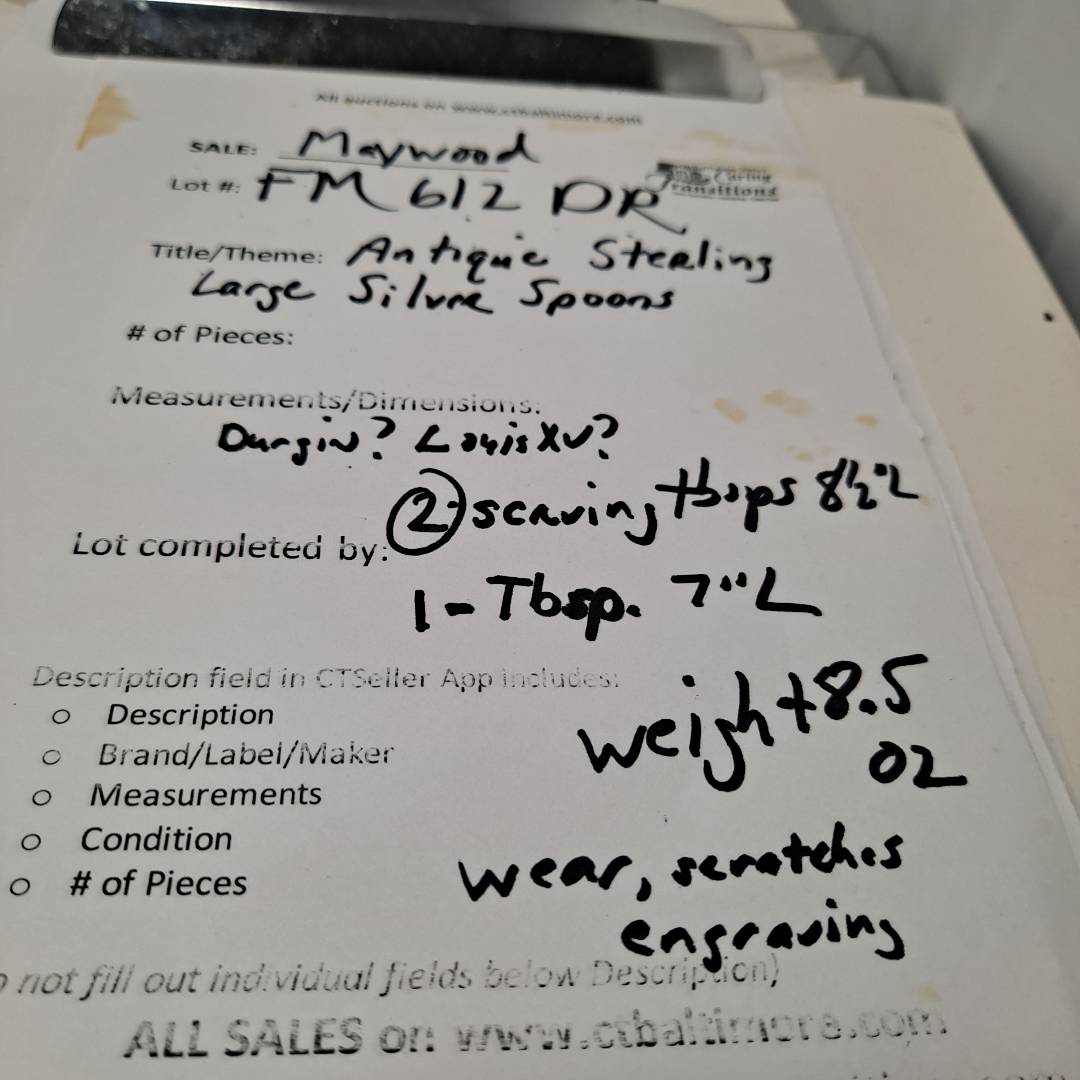 All auctions on www.ctbaltimore.com
SALE: Maywood
Caring
Transitions
Lot #: FM 612 DR
Title/Theme: Antique Sterling
Large Silver Spoons
# of Pieces:
Measurements/Dimensions:
Durgin? Louis XV?
2 - serving tbsps 8½" L
Lot completed by:
1 - Tbsp. 7" L
Description field in CTSeller App includes:
○ Description
○ Brand/Label/Maker
○ Measurements
○ Condition
○ # of Pieces
weight 8.5
oz
wear, scratches
engraving
not fill out individual fields below Description)
ALL SALES on www.ctbaltimore.com